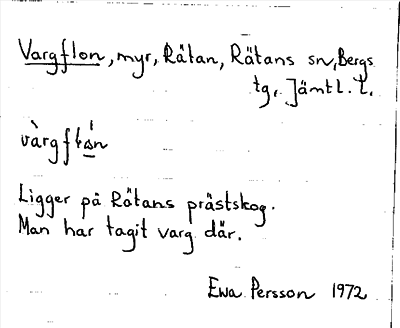 Vargflon, myr, Rätan, Rätans sn, Bergs
tg, Jämtl. l.
Ligger på Rätans prästskog.
Man har tagit varg där.
Ewa Persson 1972